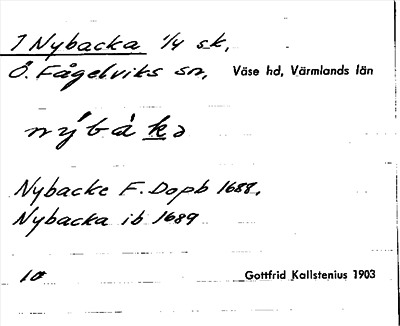 1 Nybacka 1/4 sk,
Ö. Fågelviks sn, Väse hd, Värmlands län
nýbàkə
Nybacke F. Dopb 1688,
Nybacka ib 1689
10 Gottfrid Kallstenius 1903